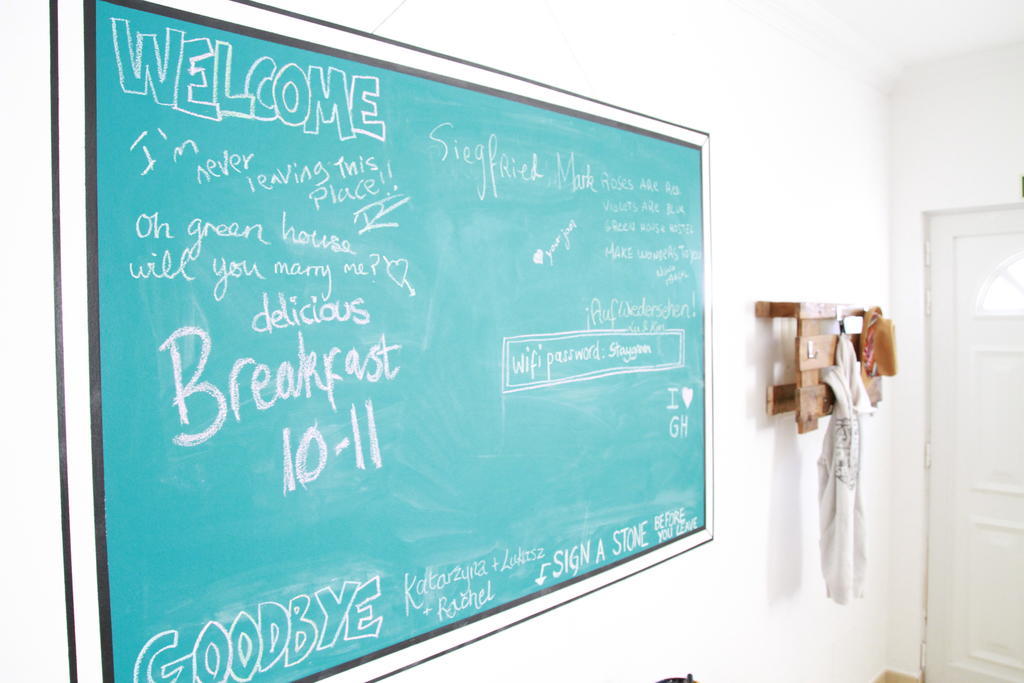 WELCOME
I'm never
leaving this
place!!
Oh green house
will you marry me?
delicious
Breakfast
10-11
GOODBYE
Siegfried, Mark
ROSES ARE RED
VIOLETS ARE BLUE
GREEN HOUSE HOSTEL
MAKE WONDERS TO YOU
your jam
¡Auf Wedersehen!
Wifi password: Staygreen
I ♥
GH
Katarzyna + Lukasz
+ Rachel
SIGN A STONE BEFORE
YOU LEAVE